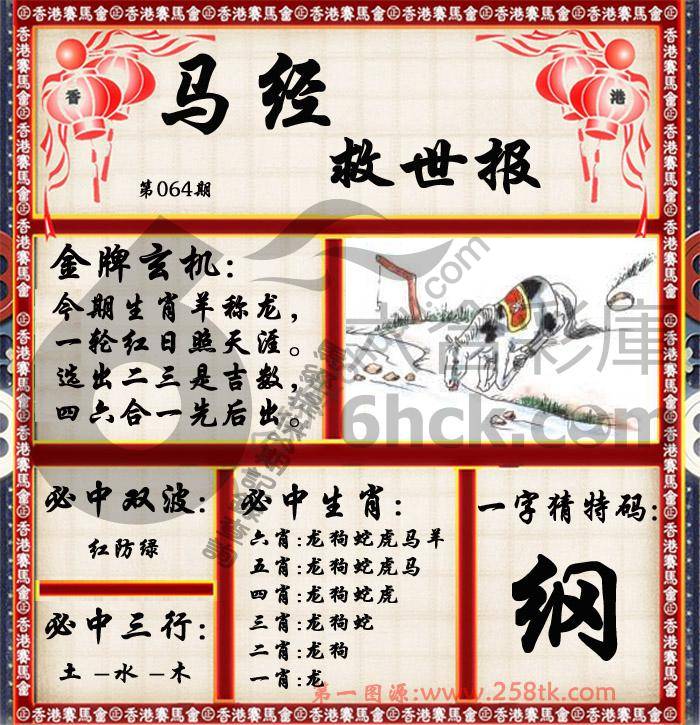 香港賽馬會
香 港
马经
救世报
第064期
金牌玄机:
今期生肖羊称龙,
一轮红日照天涯。
选出二三是吉数,
四六合一先后出。
六合彩庫
6hck.com
必中双波:
红防绿
必中三行:
土-水-木
必中生肖:
六肖:龙狗蛇虎马羊
五肖:龙狗蛇虎马
四肖:龙狗蛇虎
三肖:龙狗蛇
二肖:龙狗
一肖:龙
一字猜特码:
纲
第一图源:www.258tk.com